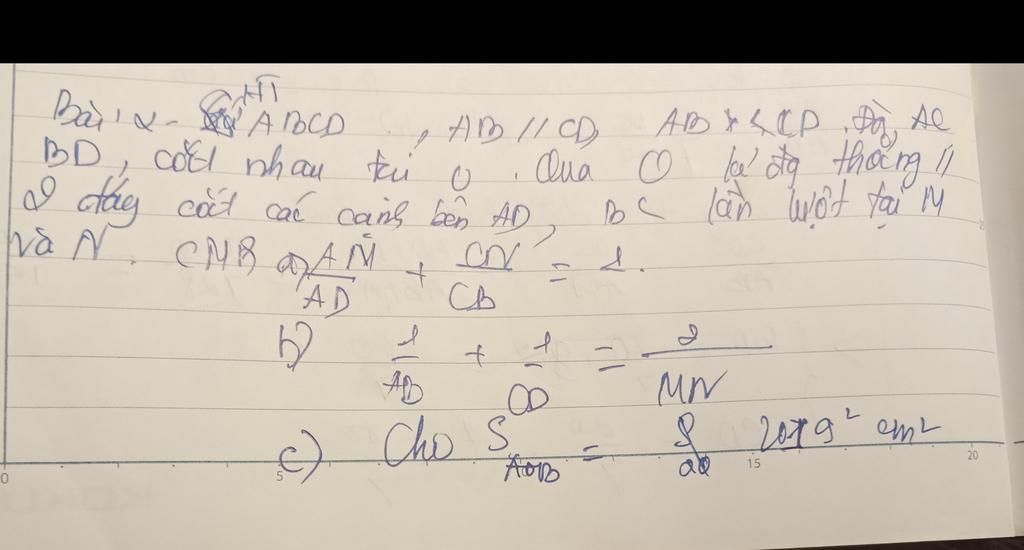 Bài 2 - HT ABCD, AB // CD, AB < CD. AC
BD, cắt nhau tại O. Qua O kẻ đg thẳng //
2 đáy cắt các cạnh bên AD, BC lần lượt tại M
và N. CMR a) AM/AD + CN/CB = 1.
b) 1/AB + 1/CD = 2/MN
c) Cho S AOB = 2019² cm²
0 5 15 20